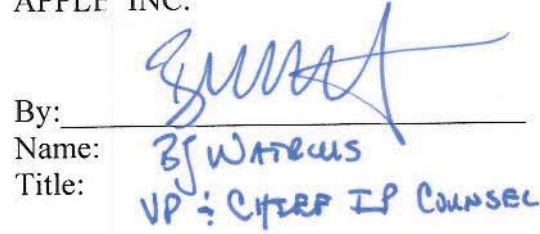 APPLE INC.
By:
Name: BJ WATROUS
Title: VP & CHIEF IP COUNSEL